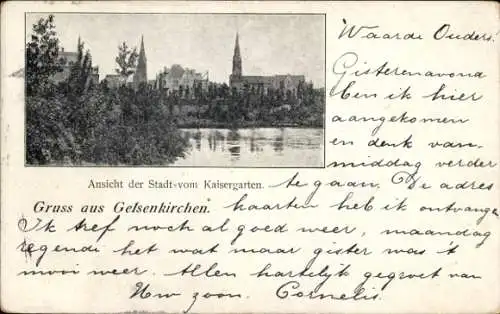 Waarde Ouders!
Gisterenavond
ben ik hier
aangekomen
en denk van-
middag verder
Ansicht der Stadt vom Kaisergarten.
te gaan. De adres
Gruss aus Gelsenkirchen.
kaarten heb ik ontvangen
Ik tref noch al goed weer, maandag
regende het wat maar gister was 't
mooi weer. Allen hartelijk gegroet van
Uw zoon. Cornelis.